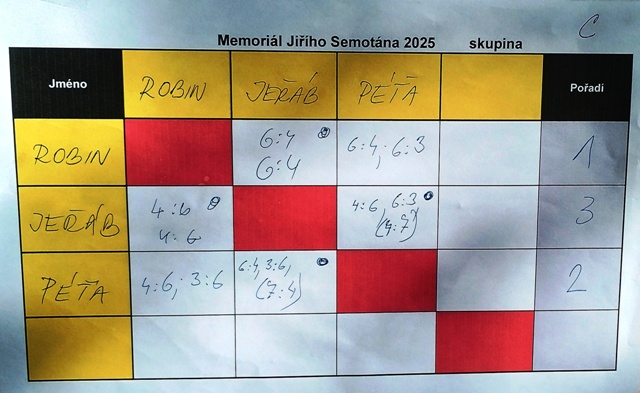 Memoriál Jiřího Semotána 2025 skupina C
Jméno ROBIN JEŘÁB PÉŤA Pořadí
ROBIN 6:4 6:4 6:4; 6:3 1
JEŘÁB 4:6 4:6 4:6, 6:3 (4:7) 3
PÉŤA 4:6; 3:6 6:4, 3:6, (7:4) 2